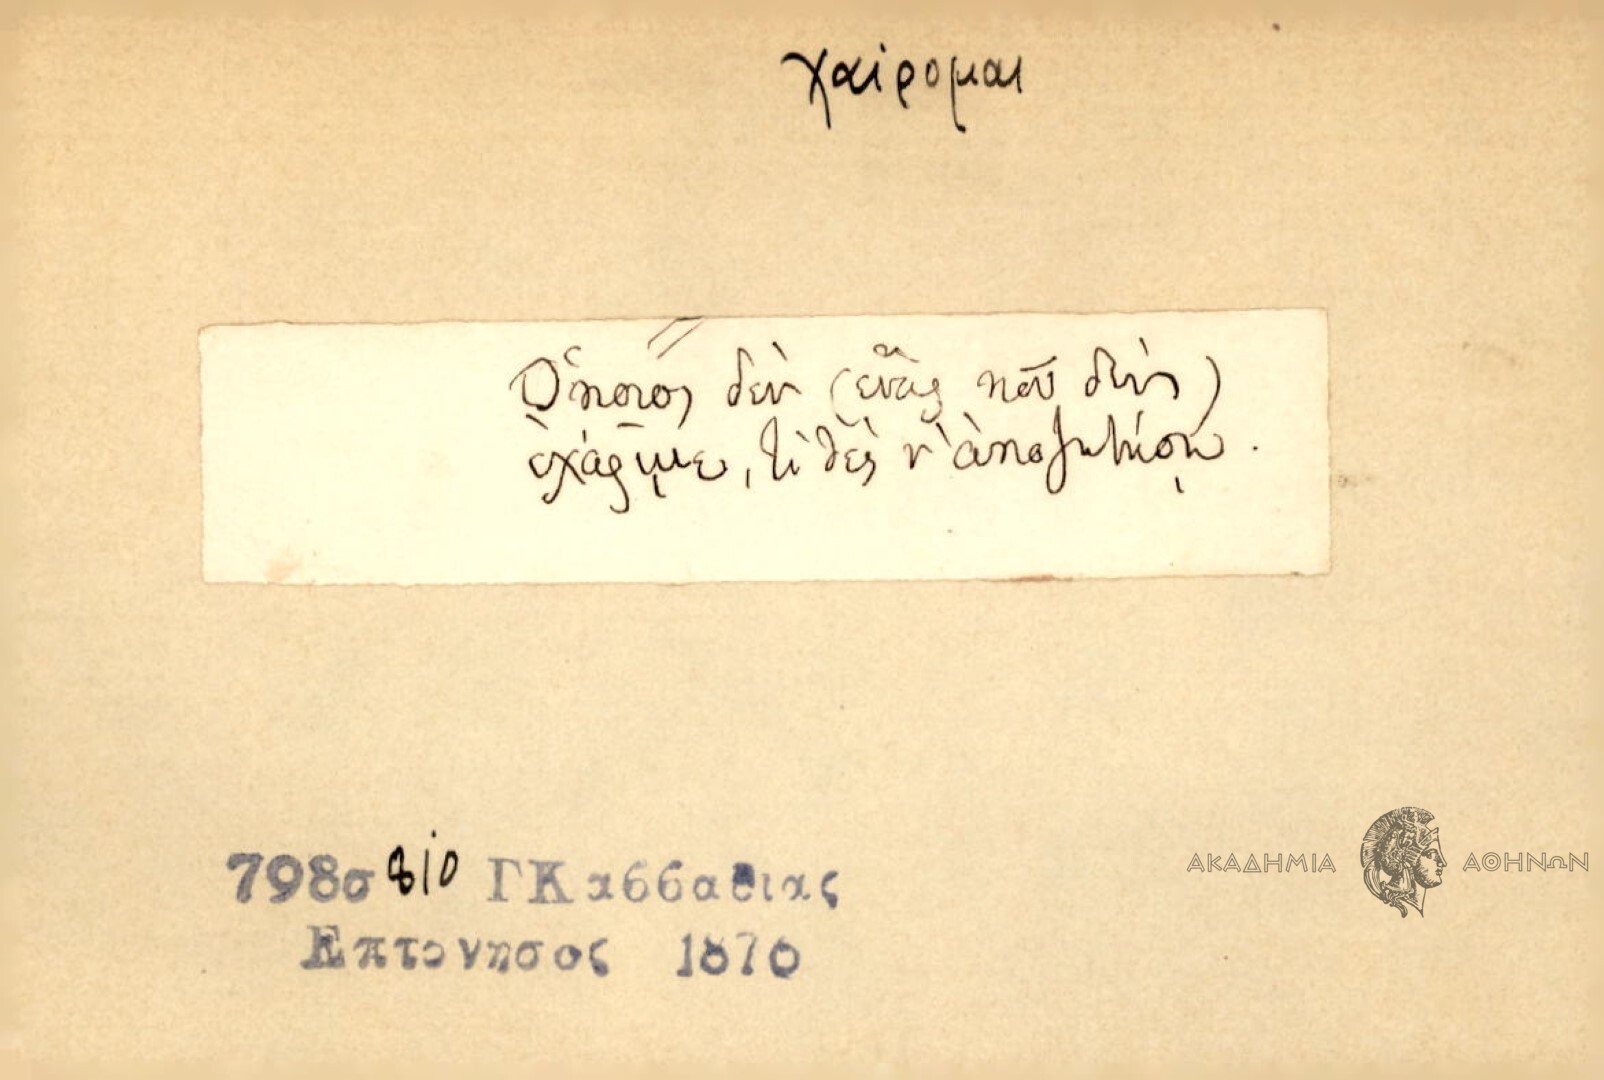 χαίρομαι
Ὅποιος δὲν (ἕνας ποῦ δὲν)
τί θὲς ν' ἀποζητήσῃ.
798σ 810 ΓΚασσατιας
Επτονησος 1876
ΑΚΑΔΗΜΙΑ ΑΘΗΝΩΝ